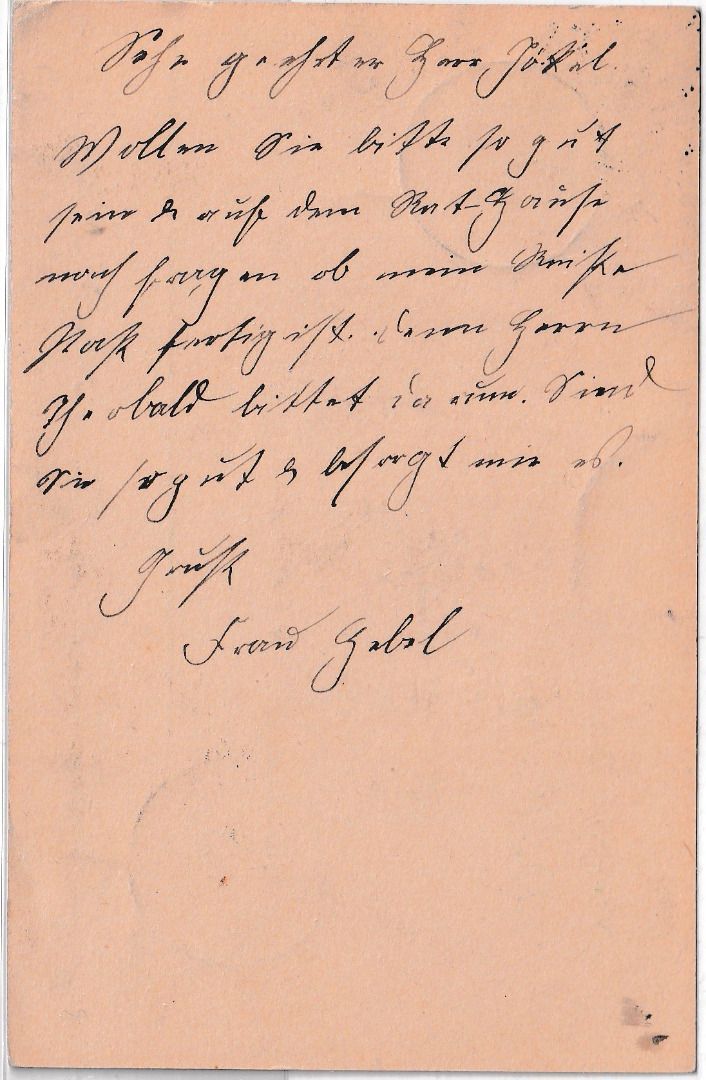 Sehr geehrter Herr Jökel.
Wollen Sie bitte so gut
sein & auf dem Rat-Hause
nach fragen ob mein Reise
Pass fertig ist. denn Herrn
Theobald bittet darum. Sind
Sie so gut & besorgt mir es.
Gruß
Frau Gebel